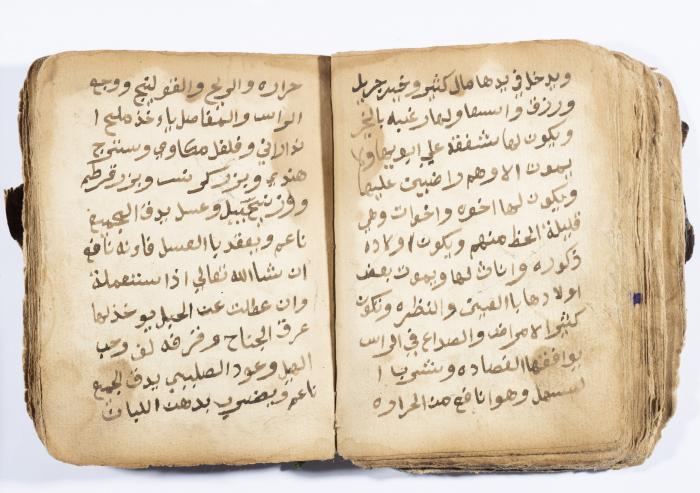 ويدخل في يدها مال كثير وخير جزيل
ورزق واسع ولها رغبه بالخير
ويكون لها شفقه علي ابويها ولا
يموت الا وهم راضيين عليها
ويكون لها اخوه واخوات وهي
قليلة الحظ منهم ويكون اولاده
ذكوره واناث لها ويموت بعض
اولادها باالعين والنظره وتكون
كثير الامراض والصداع في الراس
يوافقها الفصاده وشرب ا
لمسهل وهو نافع من الحراره
حراره والريح والقولينج ووجع
الراس والمفاصل ياءخذ ملح ا
ندراني وفلفل مكاوي وسنترج
هندي وبزر كرفس وبزر قرطم
ووزن زنجبيل وعسل يدق الجميع
ناعم ويعقد باالعسل فاءنه نافع
ان شاالله تعالي اذا ستعملة
وان عطلت عن الحبل يوءخذ لها
عرق الجناح وقرفه لف وحب
الهيل وعود الصليبي يدق الجميع
ناعم ويضرب بدهن اللبان